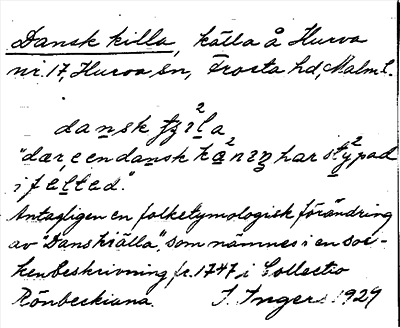 Dansk killa, källa å Hurva
nr. 17, Hurva sn, Frosta hd, Malm. l.
dansk
"dær, e en dansk har
i
Antagligen en folketymologisk förändring
av "Danskiälla", som nämnes i en soc-
kenbeskrivning fr. 1747, i Collectio
Rönbeckiana. I. Ingers 1927